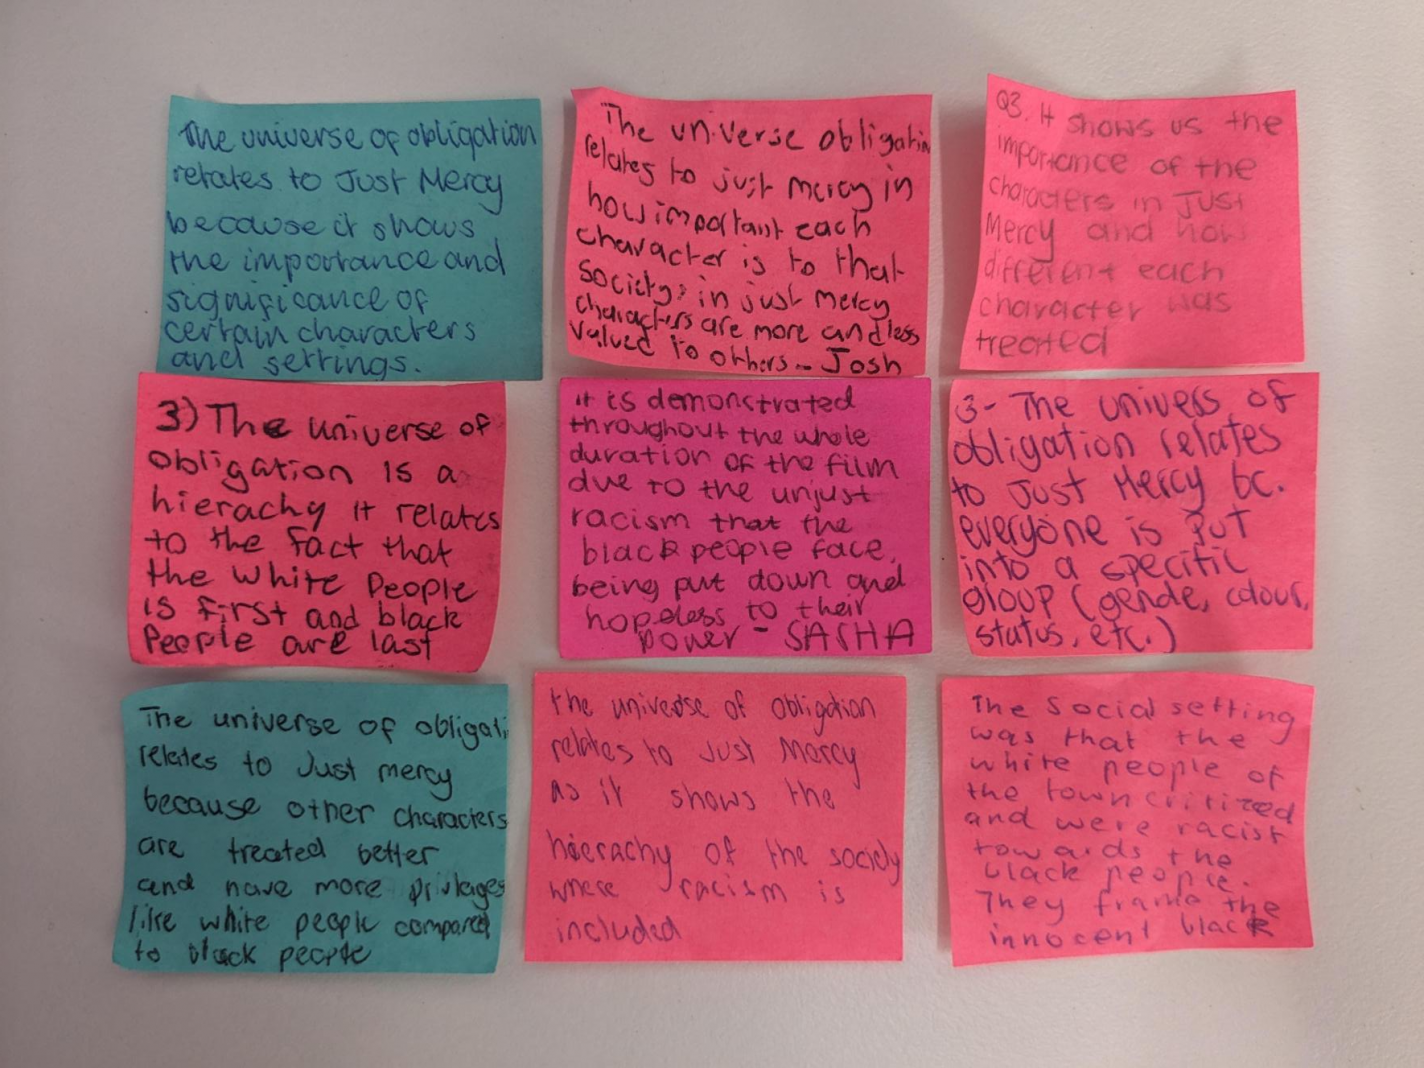 The universe of obligation
relates to Just Mercy
because it shows
the importance and
significance of
certain characters
and settings.
The universe obligation
relates to just mercy in
how important each
character is to that
society; in just mercy
characters are more and less
valued to others - Josh
Q3. It shows us the
importance of the
characters in Just
Mercy and how
different each
character was
treated
3) The universe of
obligation is a
hierachy it relates
to the fact that
the white People
is first and black
People are last
it is demonstrated
throughout the whole
duration of the film
due to the unjust
racism that the
black people face,
being put down and
hopeless to their
power - SASHA
3- The univers of
obligation relates
to Just Mercy bc.
everyone is put
into a specific
group (gende, colour,
status, etc.)
The universe of obligati
relates to Just mercy
because other characters
are treated better
and have more privlages
like white people compared
to black people
the universe of obligation
relates to Just Mercy
as it shows the
hierachy of the society
where racism is
included
The Social setting
was that the
white people of
the town critized
and were racist
towards the
black people.
They frame the
innocent black